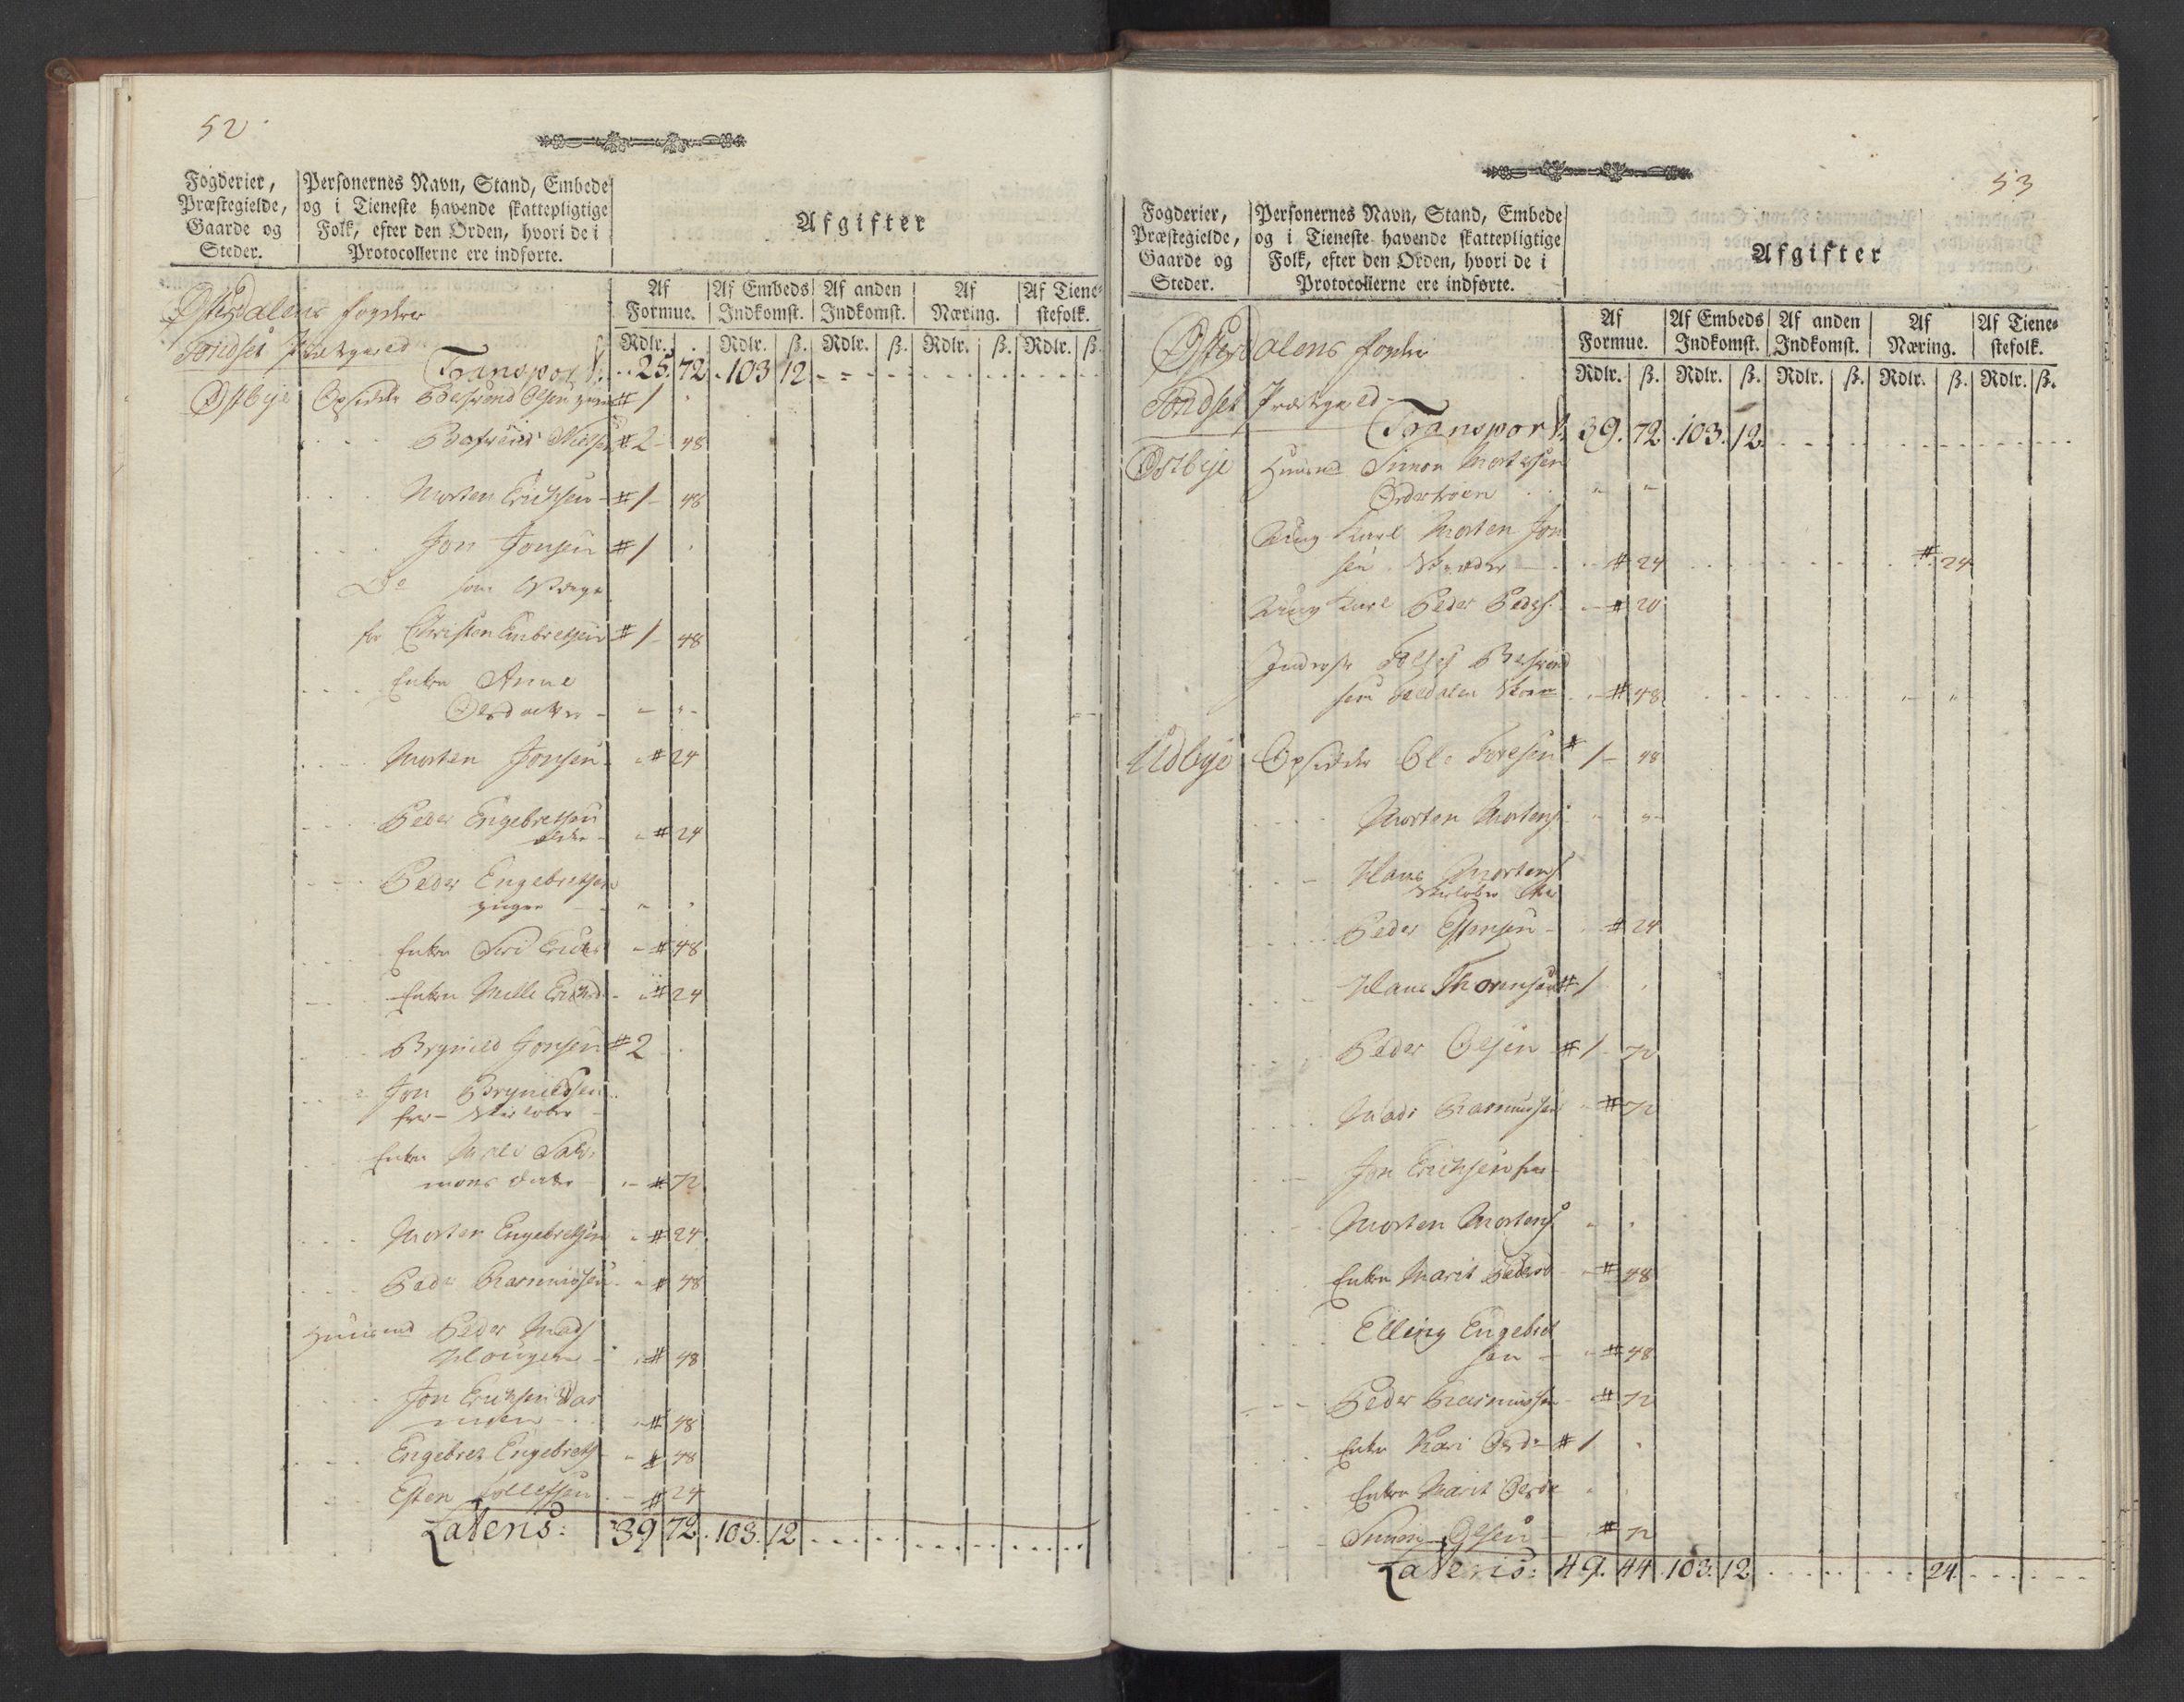 52
Fogderier,
Præstegielde,
Gaarde og
Steder.
Personernes Navn, Stand, Embede
og i Tieneste havende skattepligtige
Folk, efter den Orden, hvori de i
Protocollerne ere indførte.
Afgifter
Af Formue.
Af Embeds Indkomst.
Af anden Indkomst.
Af Næring.
Af Tienestefolk.
Rdlr. Rdlr. ß. Rdlr. ß. Rdlr. ß. Rdlr. ß.
Østerdalens fogderie
Tøndset Præstegield
Transport 25. 72. 103 12
Østbye Opsidder Olsen # 1
# 2 - 48
Morten Erichsen - # 1 - 48
Jon Jonsen # 1
Do som
for Christen Embretsen # 1 - 48
Enken Anne
Olsdatter
Morten Jonsen # 24
Peder Engebretsen
ældre # 24
Peder Engebretsen
yngre
Enken Siri # 48
Enken Mille # 24
Brynild Jonsen # 2
Jon Brynildsen
Skieløber
Enken
mons datter # 72
Morten Engebretsen # 24
Peder Rasmussen # 48
Huusmd Peder Mads
Haugen # 48
Jon Erichsen
# 48
Engebret Engebrets # 48
Esten # 24
Lateris: 39 72. 103. 12
53
Fogderier,
Præstegielde,
Gaarde og
Steder.
Personernes Navn, Stand, Embede
og i Tieneste havende skattepligtige
Folk, efter den Orden, hvori de i
Protocollerne ere indførte.
Afgifter
Af Formue.
Af Embeds Indkomst.
Af anden Indkomst.
Af Næring.
Af Tienestefolk.
Rdlr. ß. Rdlr. ß. Rdlr. ß. Rdlr. ß. Rdlr. ß.
Østerdalens fogderie
Tøndset Præstegield
Transport 39. 72. 103. 12.
Østbye Huusmd Simon Mortensen
Ung Karl Morten Jon
sen # 24 # 24
Ung Karl Peder Peders. # 20
Inderste
sen # 48
Udbye Opsidder Ole # 1 - 48
Morten Mortens.
Hans Mortens
Skieløber
Peder Estensen # 24
Hans Thoresen # 1
Peder Olsen # 1 - 72
Mads Rasmussen # 72
Jon Erichsen
Morten Mortens
Enken Marit # 48
Elling Engebret
sen # 48
Peder Rasmussen # 72
Enken Kari # 1
Enken Marit
Olsen # 72
Lateris: 49. 44. 103. 12 24.